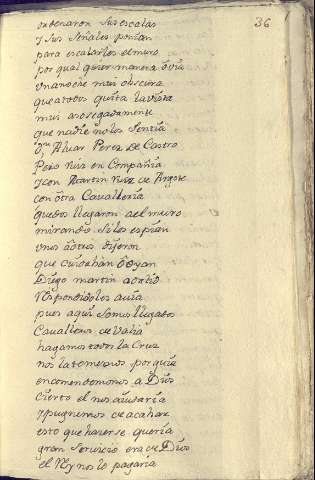 36
ordenaron sus escalas
y sus señales ponian
para escalarles el muro
por qual quier manera ò via
una noche mui obscura
que a todos quita la vista
mui asosegadamente
que nadie no los sentia
Dn Alvar Perez de Castro
Pero Ruiz en Compañia
y con Martin Ruiz de Argote
con otra Cavalleria
quedos llegaron a el muro
mirando si los espian
unos a otros dijeron
que escuchan ò oyan
Diego martin
Respondidoles avia
pues aqui somos llegados
Cavalleros de valia
hagamos todos la Cruz
no la tememos por guia
encomendemonos a Dios
cierto el nos aiudaria
y pugnemos de acabar
esto que hacerse queria
gran servicio era de Dios
el Rey nos lo pagaria